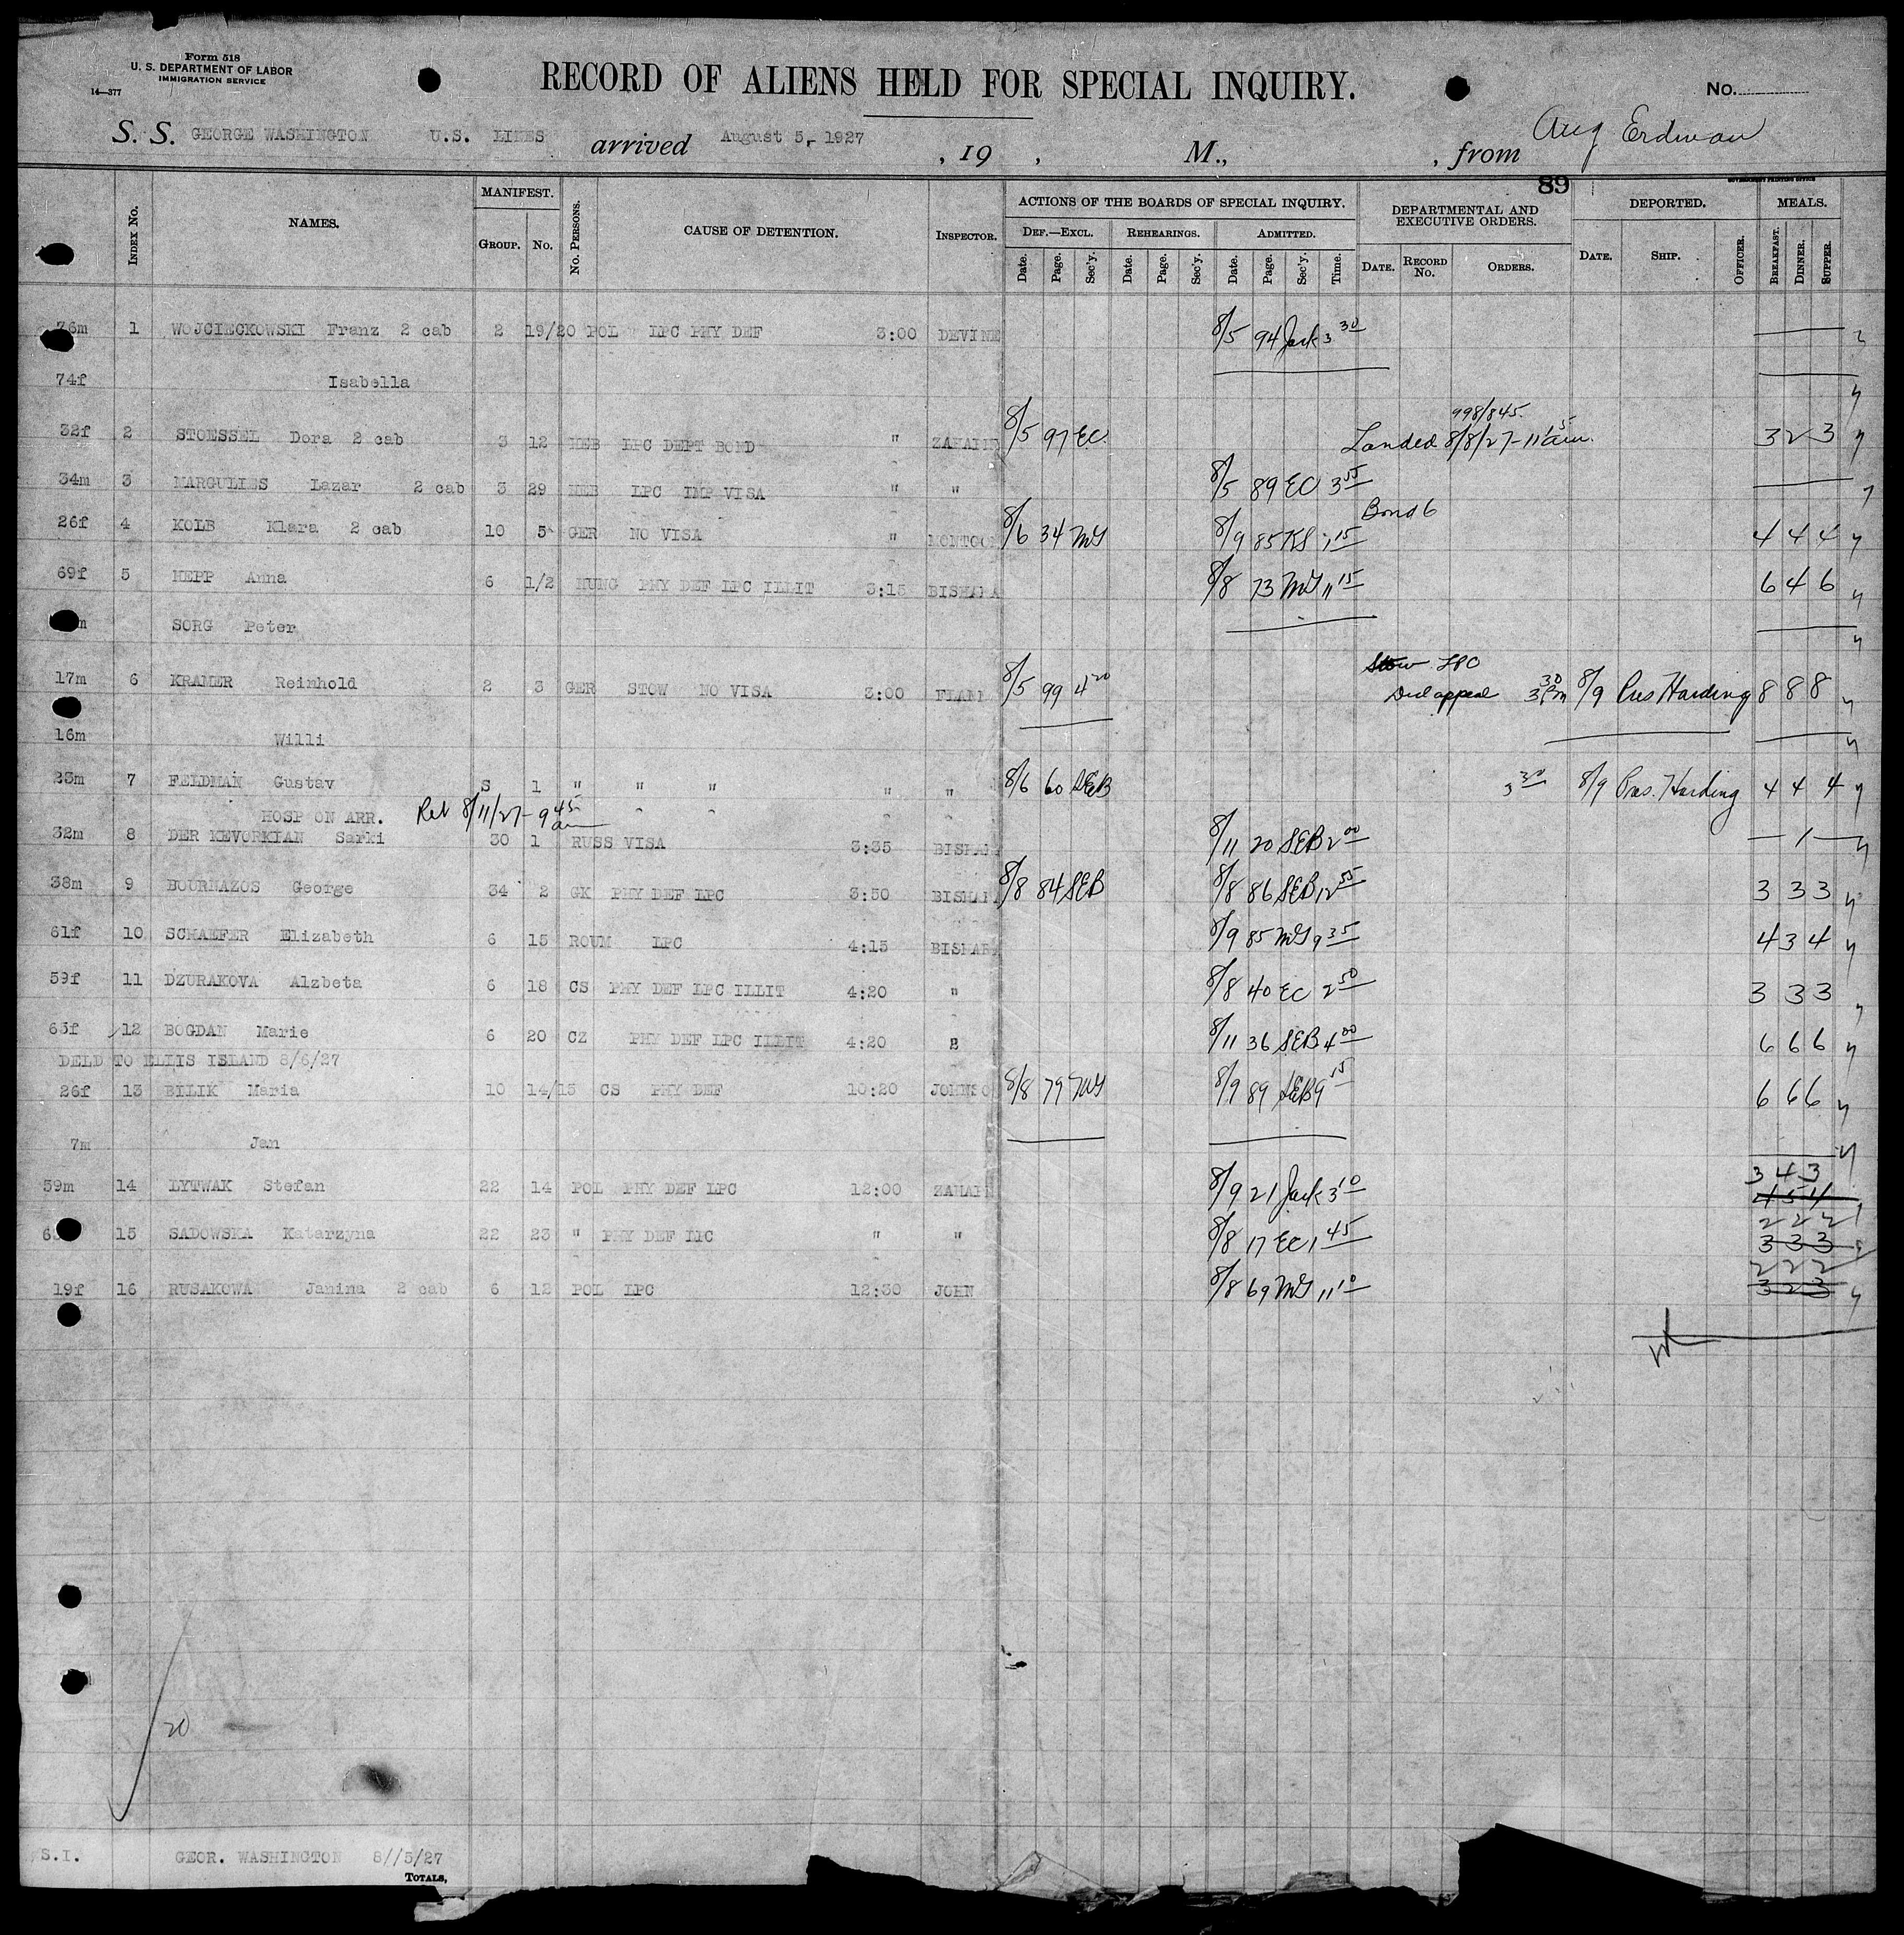 Form 518
U. S. DEPARTMENT OF LABOR
IMMIGRATION SERVICE
14—377
RECORD OF ALIENS HELD FOR SPECIAL INQUIRY.
No.
S. S. GEORGE WASHINGTON U.S. LINES arrived August 5, 1927 , 19 , M., , from Aug Erdman
89
GOVERNMENT PRINTING OFFICE
INDEX NO. NAMES. MANIFEST. GROUP. NO. NO. PERSONS. CAUSE OF DETENTION. INSPECTOR. ACTIONS OF THE BOARDS OF SPECIAL INQUIRY. DEPARTMENTAL AND EXECUTIVE ORDERS. DEPORTED. MEALS.
DEF.—EXCL. REHEARINGS. ADMITTED.
Date. Page. Sec'y. Date. Page. Sec'y. Date. Page. Sec'y. Time. DATE. RECORD NO. ORDERS. DATE. SHIP. OFFICER. BREAKFAST. DINNER. SUPPER.
76m 1 WOJCIECKOWSKI Franz 2 cab 2 19/20 POL LPC PHY DEF 3:00 DEVINE 8/5 94 Jack 3 30
74f Isabella
998/845
32f 2 STOESSEL Dora 2 cab 3 12 HEB LPC DEPT BOND " 8/5 97 EC Landed 8/8/27-11 15 am. 3 2 3
34m 3 MARGULIES Lazar 2 cab 3 29 HEB LPC IMP VISA " " 8/5 89 EC 3 55
Bond 6
26f 4 KOLB Klara 2 cab 10 5 GER NO VISA " MONTGO 8/6 34 8/9 85 15 4 4 4
69f 5 HEPP Anna 6 1/2 HUNG PHY DEF LPC ILLIT 3:15 BISHARA 8/8 73 11 15 6 4 6
m SORG Peter
Stow LPC
17m 6 KRAMER Reinhold 2 3 GER STOW NO VISA 3:00 8/5 99 4 20 appeal 3 30 PM 8/9 Pres Harding 8 8 8
16m Willi
23m 7 FELDMAN Gustav S 1 " " " " " 8/6 60 SEB 3 30 8/9 Pres. Harding 4 4 4
HOSP ON ARR. Rel 8/11/27-9 45 am
32m 8 DER KEVORKIAN Sarki 30 1 RUSS VISA 3:35 BISHARA 8/11 20 SEB 2 00 — 1 —
38m 9 BOURNAZOS George 34 2 GK PHY DEF LPC 3:50 BISHARA 8/8 84 SEB 8/8 86 SEB 12 55 3 3 3
61f 10 SCHAEFER Elizabeth 6 15 ROUM LPC 4:15 BISHARA 8/9 85 9 35 4 3 4
59f 11 DZURAKOVA Alzbeta 6 18 CS PHY DEF LPC ILLIT 4:20 " 8/8 40 EC 2 50 3 3 3
65f 12 BOGDAN Marie 6 20 CZ PHY DEF LPC ILLIT 4:20 8/11 36 SEB 4 00 6 6 6
DELD TO ELLIS ISLAND 8/6/27
26f 13 BILIK Maria 10 14/15 CS PHY DEF 10:20 JOHNSO 8/8 79 8/9 89 SEB 9 6 6 6
7m Jan
3 4 3
59m 14 LYTWAK Stefan 22 14 POL PHY DEF LPC 12:00 8/9 21 Jack 3 10 4 5 4
2 2 2
15 SADOWSKA Katarzyna 22 23 " PHY DEF LPC " " 8/8 17 EC 1 45 3 3 3
2 2 2
19f 16 RUSAKOWA Janina 2 cab 6 12 POL LPC 12:30 JOHN 8/8 69 11 10 3 2 3
20
S.I. GEOR. WASHINGTON 8//5/27
TOTALS,